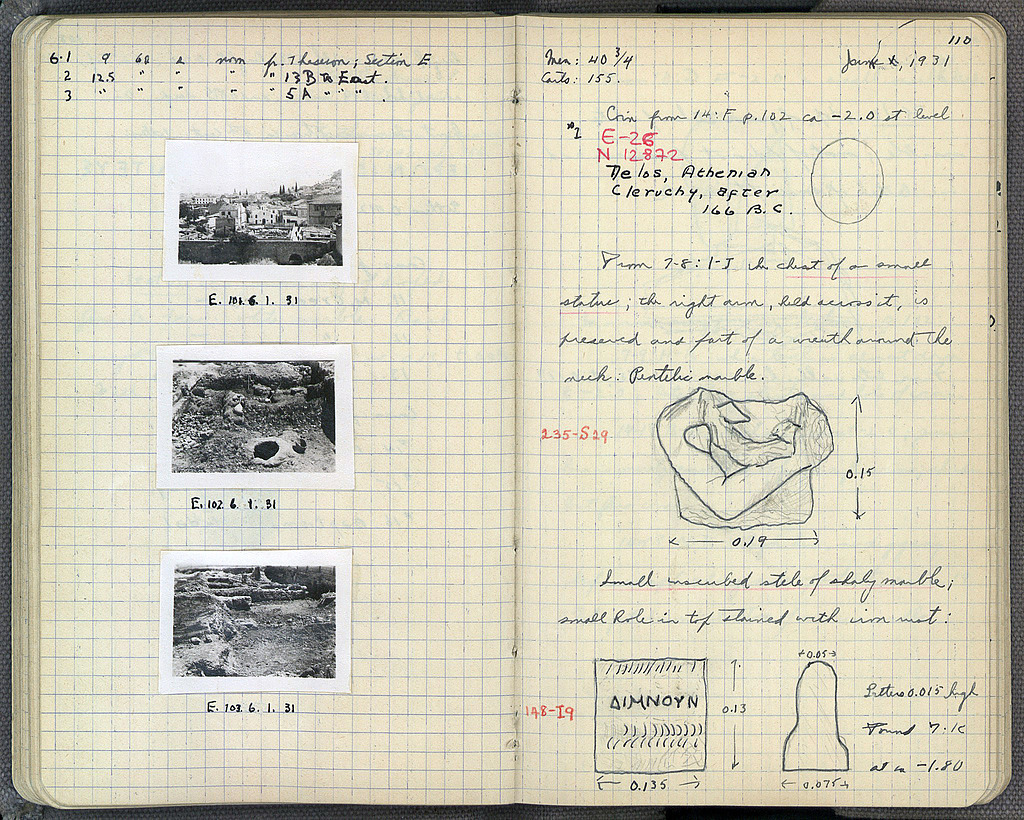 6.1 9 60 2 nom fr. Theseion; Section E
2 12.5 " " " " 13B to East.
3 " " " " " 5A " " "
E. 101. 6. 1. 31
E. 102. 6. 1. 31
E. 103. 6. 1. 31
110
Men: 40 3/4
Carts: 155.
June 1, 1931
Coin from 14:F p.102 ca -2.0 at level
E-26
N 12872
Delos, Athenian
Cleruchy, after
166 B.C.
From 7-8:I-J the chest of a small
statue; the right arm, held across it, is
preserved and part of a wreath around the
neck. Pentelic marble.
235-S29
0.15
0.19
Small inscribed stele of shaly marble;
small hole in top stained with iron rust:
148-I9
ΔΙΜΝΟΥΝ
0.13
0.135
0.05
0.075
Letters 0.015 high
Found 7:IC
at ca -1.80